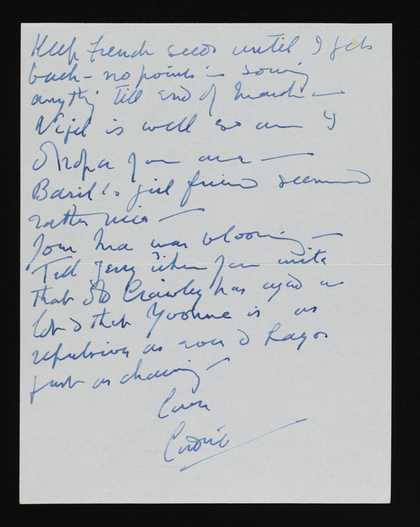 Keep French seeds until I get
back – no point in sowing
anything till end of March –
Nigel is well so am I
Hope you are –
Basil's girl friend seemed
rather nice –
Your Ma was blooming –
Tell Jerry when you write
that St Crawley has aged a
lot & that Yvonne is as
repulsive as ever &
just as charming –
Love
Cedric